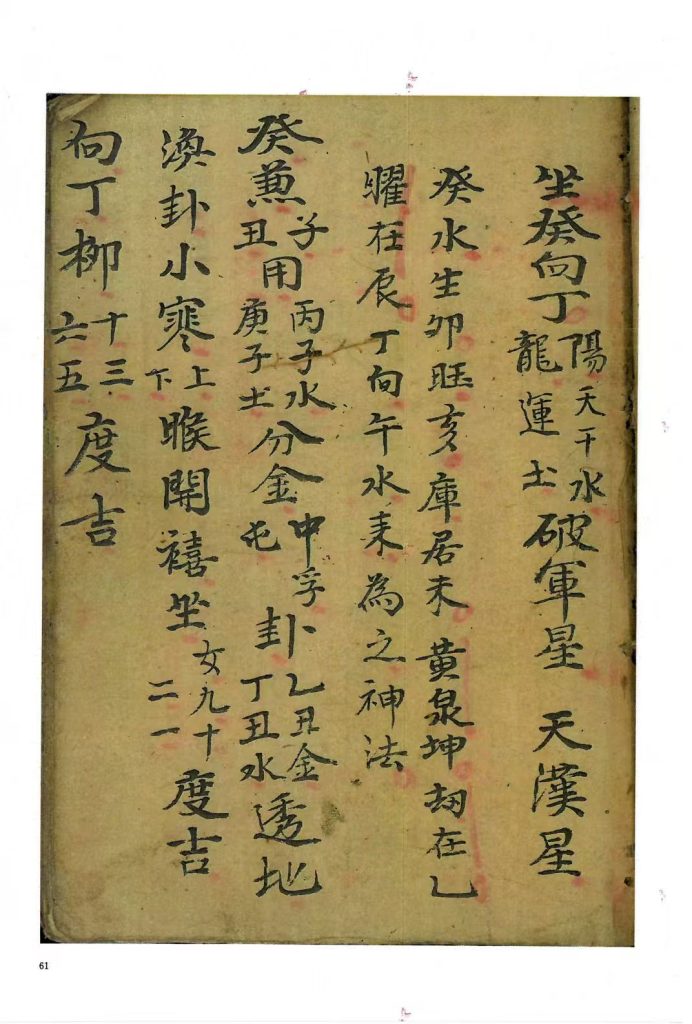 坐癸向丁陽天干水龍運土破軍星天漢星
癸水生卯旺亥庫居未黃泉坤劫在乙
曜在辰丁向午水来為之神法
癸兼子丑用丙子水庚子土分金中孚屯卦乙丑金丁丑水透地
渙卦小寒上下㬋開禧坐女九十二一度吉
向丁柳十三六五度吉
61